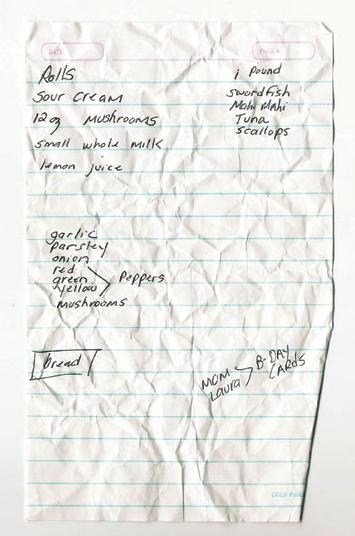 DATE
PAGE #
Rolls
Sour cream
12 oz mushrooms
small whole milk
lemon juice
1 Pound
swordfish
Mahi Mahi
Tuna
scallops
garlic
parsley
onion
red
green
yellow
Peppers
mushrooms
bread
MOM
Laura
B-DAY
CARDS